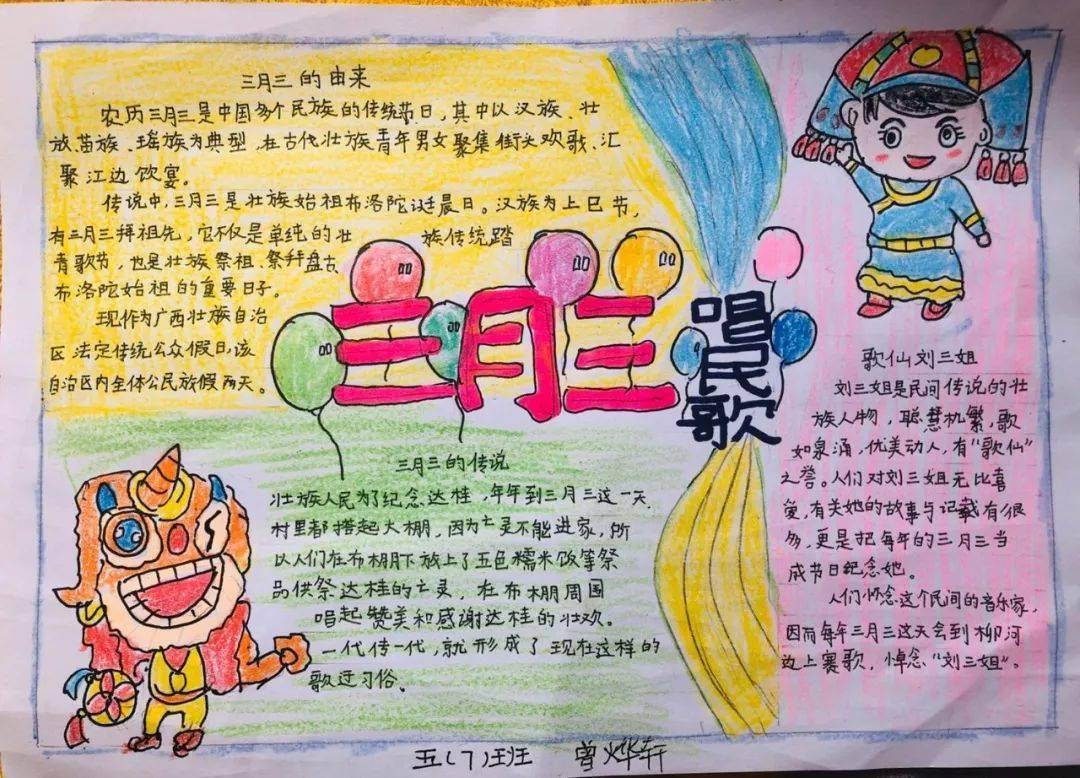 三月三的由来
农历三月三是中国多个民族的传统节日,其中以汉族、壮
族苗族、瑶族为典型,在古代壮族青年男女聚集街头欢歌、汇
聚江边饮宴。
传说中,三月三是壮族始祖布洛陀诞晨日。汉族为上巳节,
有三月三拜祖先,它不仅是单纯的壮 族传统踏
青歌节,也是壮族祭祖、祭拜盘古
布洛陀始祖的重要日子。
现作为广西壮族自治
区法定传统公众假日,该
自治区内全体公民放假两天。
三月三
唱
民
歌
三月三的传说
壮族人民为了纪念达桂,年年到三月三这一天
村里都搭起大棚,因为亡灵不能进家,所
以人们在布棚下放上了五色糯米饭等祭
品供祭达桂的亡灵,在布棚周围
唱起赞美和感谢达桂的壮欢。
一代传一代,就形成了现在这样的
歌迂习俗。
歌仙刘三姐
刘三姐是民间传说的壮
族人物,聪慧机繁,歌
如泉涌,优美动人,有“歌仙”
之誉。人们对刘三姐无比喜
爱,有关她的故事与记载有很
多,更是把每年的三月三当
成节日纪念她。
人们怀念这个民间的音乐家,
因而每年三月三这天会到柳河
边上赛歌,悼念“刘三姐”。
五(7)班 曾烨轩